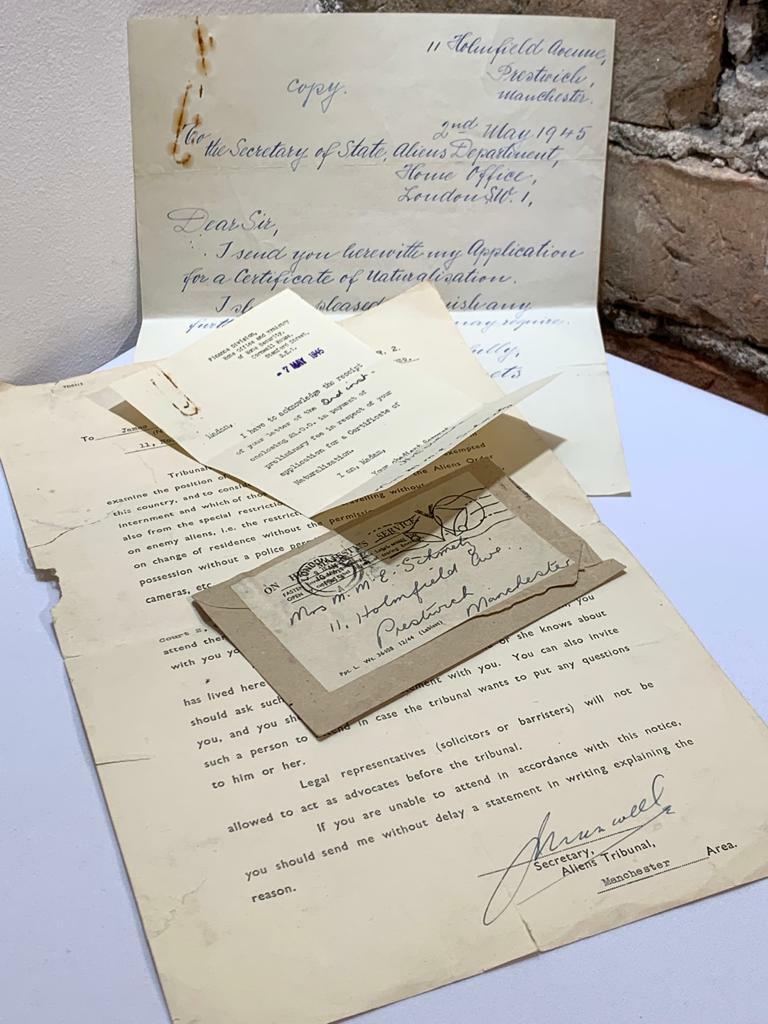 11 Holmfield Avenue,
Prestwich,
Manchester.
copy.
2nd May 1945
To the Secretary of State, Aliens Department,
Home Office,
London S.W.1,
Dear Sir,
I send you herewith my Application
for a Certificate of Naturalisation.
pleased
any
may require.
Finance Division,
Home Office and Ministry
of Home Security,
Cornwall House,
Stamford Street,
S.E.1.
- 7 MAY 1945
Madam,
I have to acknowledge the receipt
of your letter of the 2nd inst.
enclosing in payment of
preliminary fee in respect of your
application for a Certificate of
Naturalization.
I am, Madam,
Your obedient Servant
To James
11,
Tribunal
examine the position of
this country, and to consider
internment and which of exempted
also from the special restrictions the Aliens Order
on enemy aliens, i.e. the travelling without
on change of residence without the
possession without a police
cameras, etc.
ON SERVICE
Mrs M. E. Schmetz
11, Holmfield Ave.
Prestwich
Manchester
court 2,
attend you
with you
has lived here or she knows about
should ask such with you. You can also invite
you, and you
such a person to in case the tribunal wants to put any questions
to him or her.
Legal representatives (solicitors or barristers) will not be
allowed to act as advocates before the tribunal.
If you are unable to attend in accordance with this notice,
you should send me without delay a statement in writing explaining the
reason.
Secretary,
Aliens Tribunal,
Manchester Area.